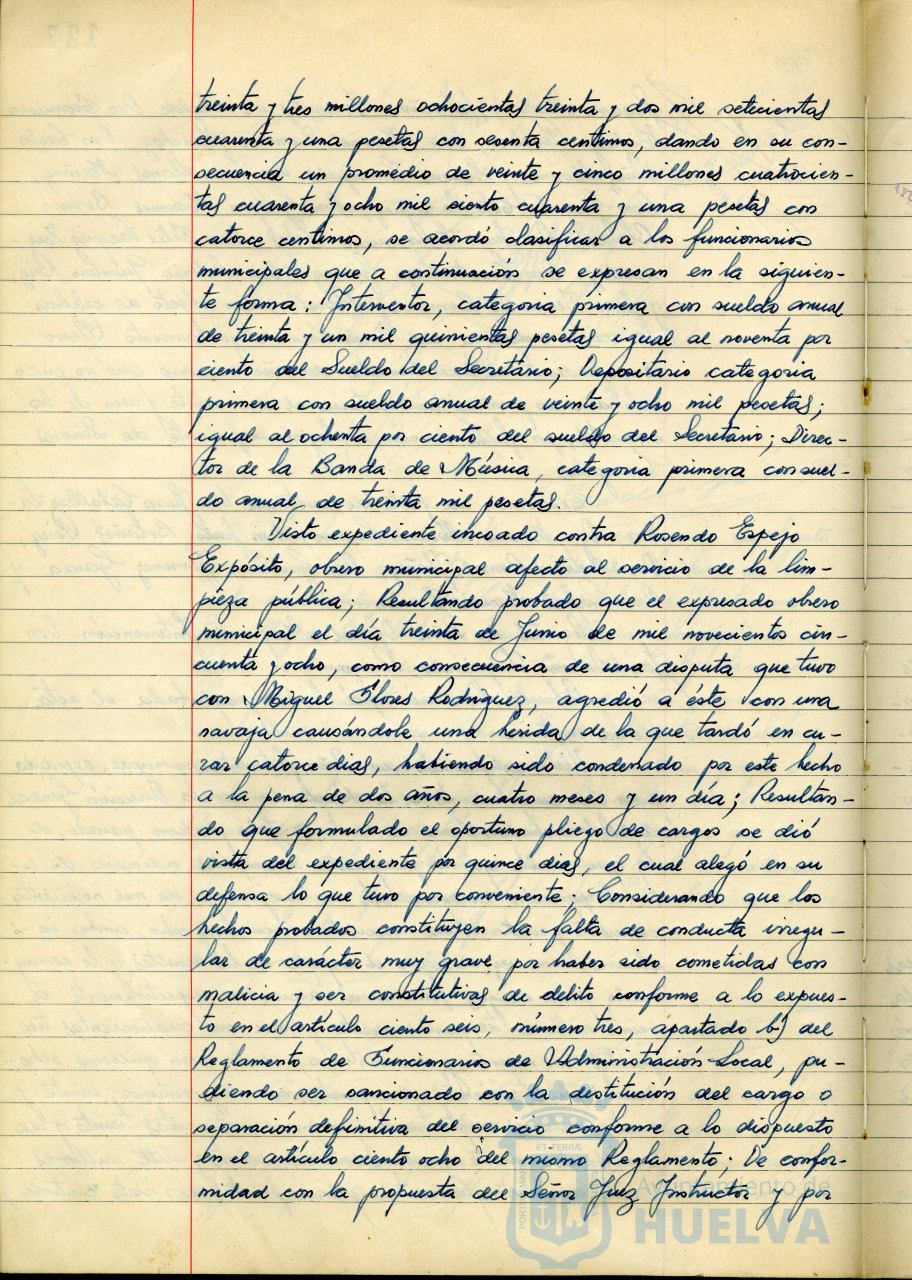 treinta y tres millones ochocientas treinta y dos mil setecientas
cuarenta y una pesetas con sesenta centimos, dando en su con-
secuencia un promedio de veinte y cinco millones cuatrocien-
tas cuarenta y ocho mil ciento cuarenta y una pesetas con
catorce centimos, se acordó clasificar a los funcionarios
municipales que a continuación se expresan en la siguien-
te forma: Interventor, categoria primera con sueldo anual
de treinta y un mil quinientas pesetas igual al noventa por
ciento del Sueldo del Secretario; Depositario categoria
primera con sueldo anual de veinte y ocho mil pesetas;
igual al ochenta por ciento del sueldo del Secretario; Direc-
tor de la Banda de Música, categoria primera con suel-
do anual de treinta mil pesetas.
Visto expediente incoado contra Rosendo Espejo
Expósito, obrero municipal afecto al servicio de la lim-
pieza pública; Resultando probado que el expresado obrero
municipal el día treinta de Junio de mil novecientos cin-
cuenta y ocho, como consecuencia de una disputa que tuvo
con Miguel Flores Rodriguez, agredió a éste con una
navaja causándole una herida de la que tardó en cu-
rar catorce dias, habiendo sido condenado por este hecho
a la pena de dos años, cuatro meses y un día; Resultan-
do que formulado el oportuno pliego de cargos se dió
vista del expediente por quince dias, el cual alegó en su
defensa lo que tuvo por conveniente; Considerando que los
hechos probados constituyen la falta de conducta irregu-
lar de carácter muy grave por haber sido cometidas con
malicia y ser constitutivas de delito conforme a lo expues-
to en el artículo ciento seis, número tres, apartado b) del
Reglamento de Funcionarios de Administración Local, pu-
diendo ser sancionado con la destitución del cargo o
separación definitiva del servicio conforme a lo dispuesto
en el artículo ciento ocho del mismo Reglamento; De confor-
midad con la propuesta del Señor Juez Instructor y por
Ayuntamiento de
HUELVA